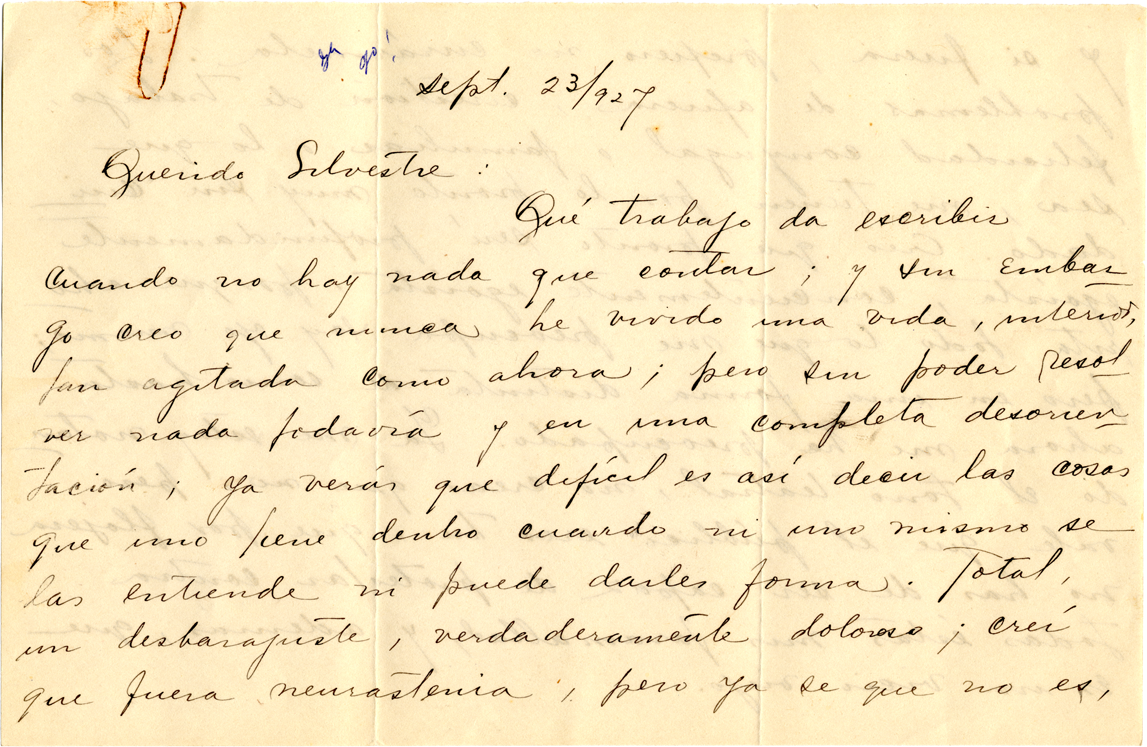 sept. 23/927
Querido Silvestre :
Qué trabajo da escribir
cuando no hay nada que contar ; y sin embar
go creo que nunca he vivido una vida, interior,
tan agitada como ahora ; pero sin poder resol
ver nada todavía y en una completa desorien-
tación ; ya verás que difícil es así decir las cosas
que uno tiene dentro cuando ni uno mismo se
las entiende ni puede darles forma. Total,
un desbarajuste, verdaderamente doloroso ; creí
que fuera, neurastenia, pero ya se que no es,